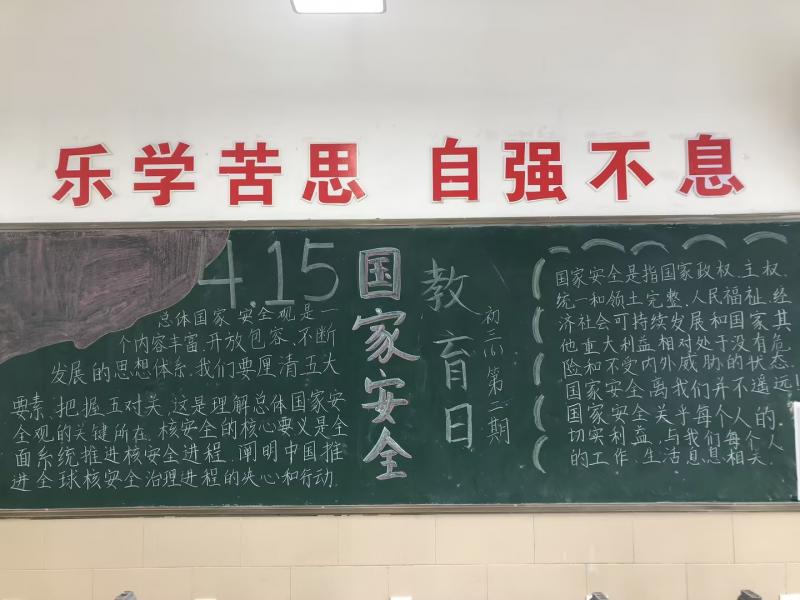 乐学苦思 自强不息
4.15
国家安全
教育日
初三(1)第二期
总体国家安全观是一
个内容丰富、开放包容、不断
发展的思想体系,我们要厘清五大
要素、把握五对关,这是理解总体国家安
全观的关键所在,核安全的核心要义是全
面系统推进核安全进程,阐明中国推
进全球核安全治理进程的决心和行动.
国家安全是指国家政权、主权、
统一和领土完整、人民福祉、经
济社会可持续发展和国家其
他重大利益相对处于没有危
险和不受内外威胁的状态.
国家安全离我们并不遥远!
国家安全关乎每个人的
切实利益,与我们每个人
的工作、生活息息相关.